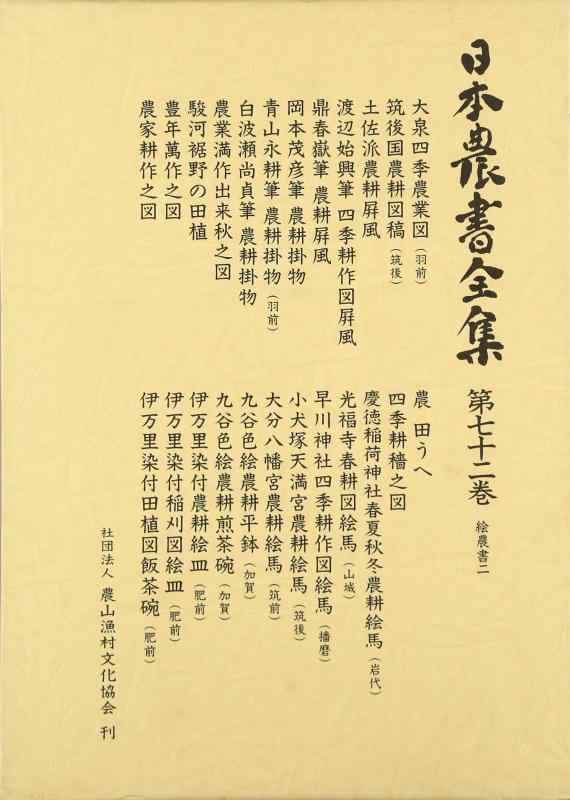 日本農書全集 第七十二巻 絵農書二
大泉四季農業図（羽前）
筑後国農耕図稿（筑後）
土佐派農耕屛風
渡辺始興筆 四季耕作図屛風
鼎春嶽筆 農耕屛風
岡本茂彦筆 農耕掛物
青山永耕筆 農耕掛物（羽前）
白波瀬尚貞筆 農耕掛物
農業満作出来秋之図
駿河裾野の田植
豊年萬作之図
農家耕作之図
農 田うへ
四季耕穡之図
慶徳稲荷神社春夏秋冬農耕絵馬（岩代）
光福寺春耕図絵馬（山城）
早川神社四季耕作図絵馬（播磨）
小犬塚天満宮農耕絵馬（筑後）
大分八幡宮農耕絵馬（筑前）
九谷色絵農耕平鉢（加賀）
九谷色絵農耕煎茶碗（加賀）
伊万里染付農耕絵皿（肥前）
伊万里染付稲刈図絵皿（肥前）
伊万里染付田植図飯茶碗（肥前）
社団法人 農山漁村文化協会 刊